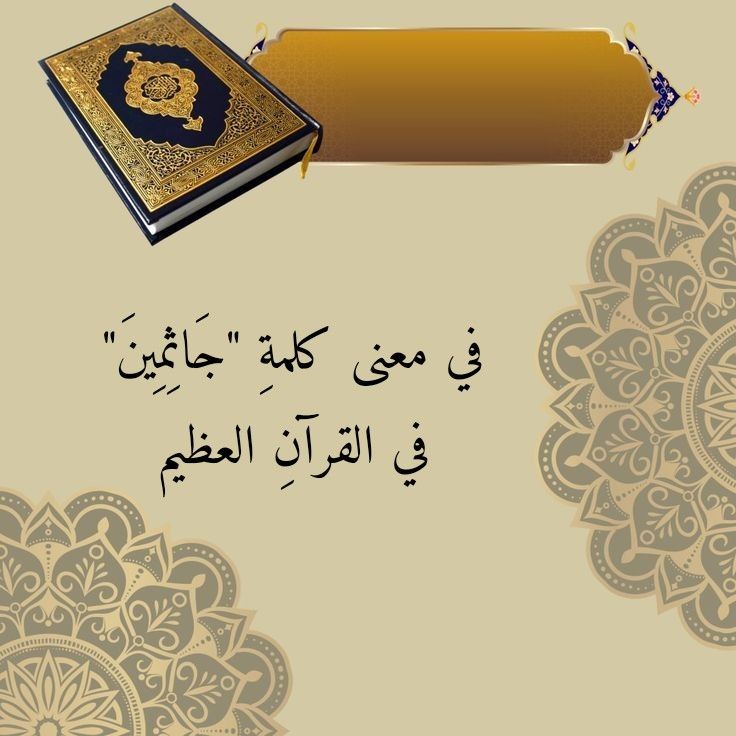 في معنى كلمةِ "جَاثِمِينَ"
في القرآنِ العظيم